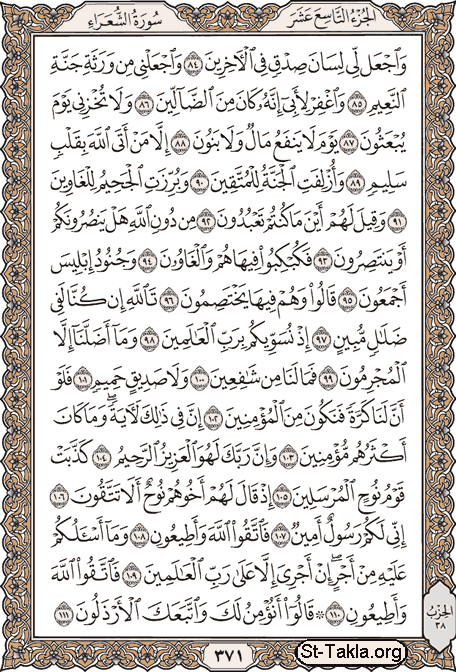 الجزء التاسع عشر
سورة الشعراء
وَاجْعَل لِّي لِسَانَ صِدْقٍ فِي الْآخِرِينَ ٨٤ وَاجْعَلْنِي مِن وَرَثَةِ جَنَّةِ
النَّعِيمِ ٨٥ وَاغْفِرْ لِأَبِي إِنَّهُ كَانَ مِنَ الضَّالِّينَ ٨٦ وَلَا تُخْزِنِي يَوْمَ
يُبْعَثُونَ ٨٧ يَوْمَ لَا يَنفَعُ مَالٌ وَلَا بَنُونَ ٨٨ إِلَّا مَنْ أَتَى اللَّهَ بِقَلْبٍ
سَلِيمٍ ٨٩ وَأُزْلِفَتِ الْجَنَّةُ لِلْمُتَّقِينَ ٩٠ وَبُرِّزَتِ الْجَحِيمُ لِلْغَاوِينَ
٩١ وَقِيلَ لَهُمْ أَيْنَ مَا كُنتُمْ تَعْبُدُونَ ٩٢ مِن دُونِ اللَّهِ هَلْ يَنصُرُونَكُمْ
أَوْ يَنتَصِرُونَ ٩٣ فَكُبْكِبُوا فِيهَا هُمْ وَالْغَاوُونَ ٩٤ وَجُنُودُ إِبْلِيسَ
أَجْمَعُونَ ٩٥ قَالُوا وَهُمْ فِيهَا يَخْتَصِمُونَ ٩٦ تَاللَّهِ إِن كُنَّا لَفِي
ضَلَالٍ مُّبِينٍ ٩٧ إِذْ نُسَوِّيكُم بِرَبِّ الْعَالَمِينَ ٩٨ وَمَا أَضَلَّنَا إِلَّا
الْمُجْرِمُونَ ٩٩ فَمَا لَنَا مِن شَافِعِينَ ١٠٠ وَلَا صَدِيقٍ حَمِيمٍ ١٠١ فَلَوْ
أَنَّ لَنَا كَرَّةً فَنَكُونَ مِنَ الْمُؤْمِنِينَ ١٠٢ إِنَّ فِي ذَٰلِكَ لَآيَةً ۖ وَمَا كَانَ
أَكْثَرُهُم مُّؤْمِنِينَ ١٠٣ وَإِنَّ رَبَّكَ لَهُوَ الْعَزِيزُ الرَّحِيمُ ١٠٤ كَذَّبَتْ
قَوْمُ نُوحٍ الْمُرْسَلِينَ ١٠٥ إِذْ قَالَ لَهُمْ أَخُوهُمْ نُوحٌ أَلَا تَتَّقُونَ ١٠٦
إِنِّي لَكُمْ رَسُولٌ أَمِينٌ ١٠٧ فَاتَّقُوا اللَّهَ وَأَطِيعُونِ ١٠٨ وَمَا أَسْأَلُكُمْ
عَلَيْهِ مِنْ أَجْرٍ ۖ إِنْ أَجْرِيَ إِلَّا عَلَىٰ رَبِّ الْعَالَمِينَ ١٠٩ فَاتَّقُوا اللَّهَ
وَأَطِيعُونِ ١١٠ ۞ قَالُوا أَنُؤْمِنُ لَكَ وَاتَّبَعَكَ الْأَرْذَلُونَ ١١١
الحزب
٣٨
٣٧١
St-Takla.org